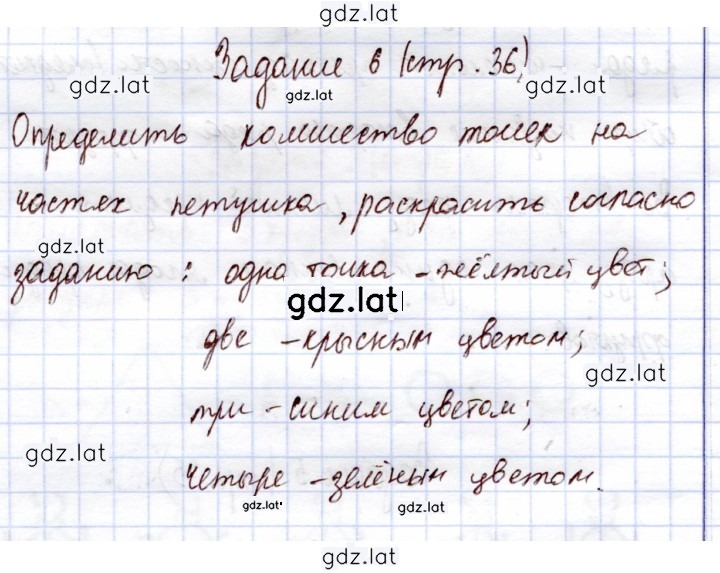 gdz.lat
Задание 6 (стр. 36)
gdz.lat
gdz.lat
gdz.lat
Определить количество точек на
частях петушка, раскрасить согласно
gdz.lat
заданию: одна точка - жёлтый цвет;
gdz.lat
две - крысным цветом;
gdz.lat
три - синим цветом;
gdz.lat
четыре - зелёным цветом.
gdz.lat
gdz.lat
gdz.lat